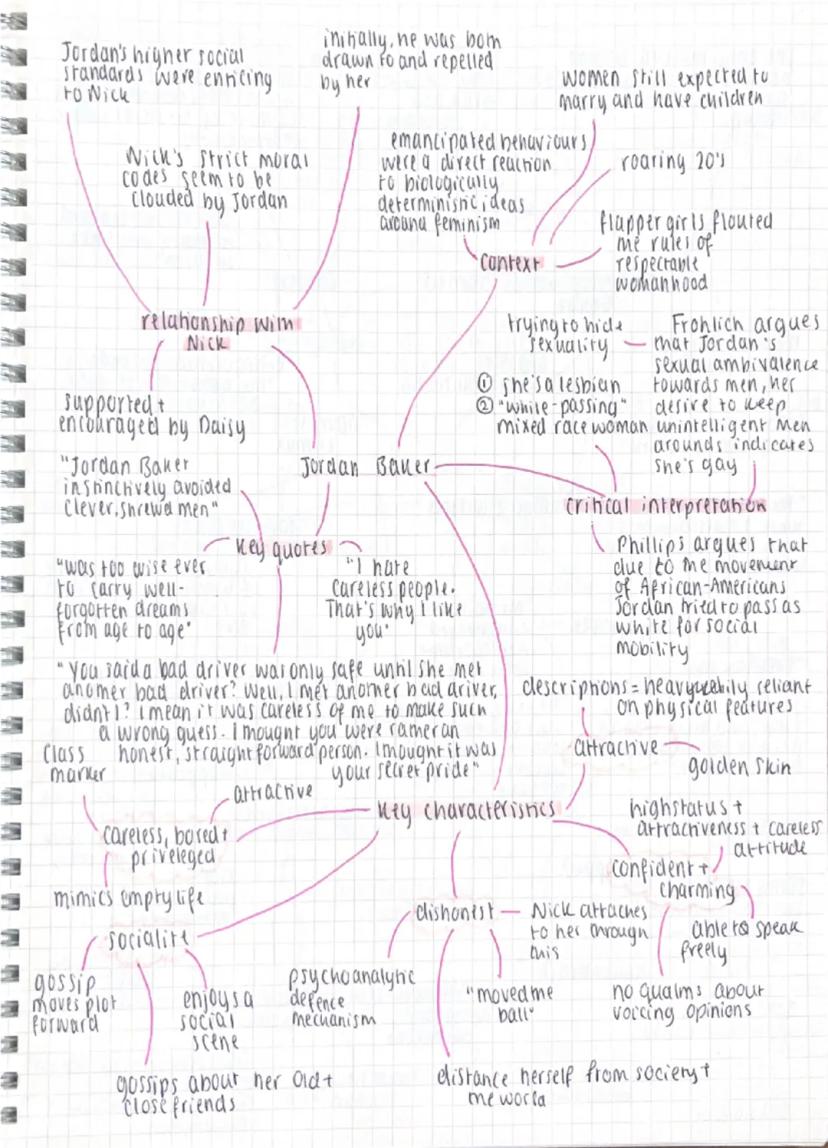 Jordan's higher social
standards were enticing
to Nick
initially, he was both
drawn to and repelled
by her
Nick's strict moral
codes seem to be
clouded by Jordan
relationship with
Nick
supported +
encouraged by Daisy
women still expected to
marry and have children
emancipated behaviours
were a direct reaction
to biologically
deterministic ideas
around feminism
roaring 20's
flapper girls flouted
the rules of
respectable
womanhood
Context
trying to hide
sexuality
① she's a lesbian
② "white-passing"
mixed race woman
Frohlich argues
that Jordan's
sexual ambivalence
towards men, her
desire to keep
unintelligent men
arounds indicates
she's gay
Jordan Baker
critical interpretation
Phillips argues that
due to the movement
of African-Americans
Jordan tried to pass as
white for social
mobility
"Jordan Baker
instinctively avoided
clever, shrewd men"
key quotes
"was too wise ever
to carry well-
forgotten dreams
from age to age"
"I hate
careless people.
That's why I like
you"
"You said a bad driver was only safe until she met
another bad driver? Well, I met another bad driver,
didn't I? I mean it was careless of me to make such
a wrong guess. I thought you were rather an
honest, straightforward person. I thought it was
your secret pride"
descriptions = heavy reliant
on physical features
attractive
golden skin
key characteristics
class
marker
attractive
careless, bored +
priveleged
mimics empty life
high status +
attractiveness + careless
attitude
confident +
charming
able to speak
freely
no qualms about
voicing opinions
dishonest
Nick attaches
to her through
this
psychoanalytic
defence
mechanism
"moved the
ball"
distance herself from society +
the world
socialite
gossip
moves plot
forward
enjoys a
social
scene
gossips about her old +
close friends